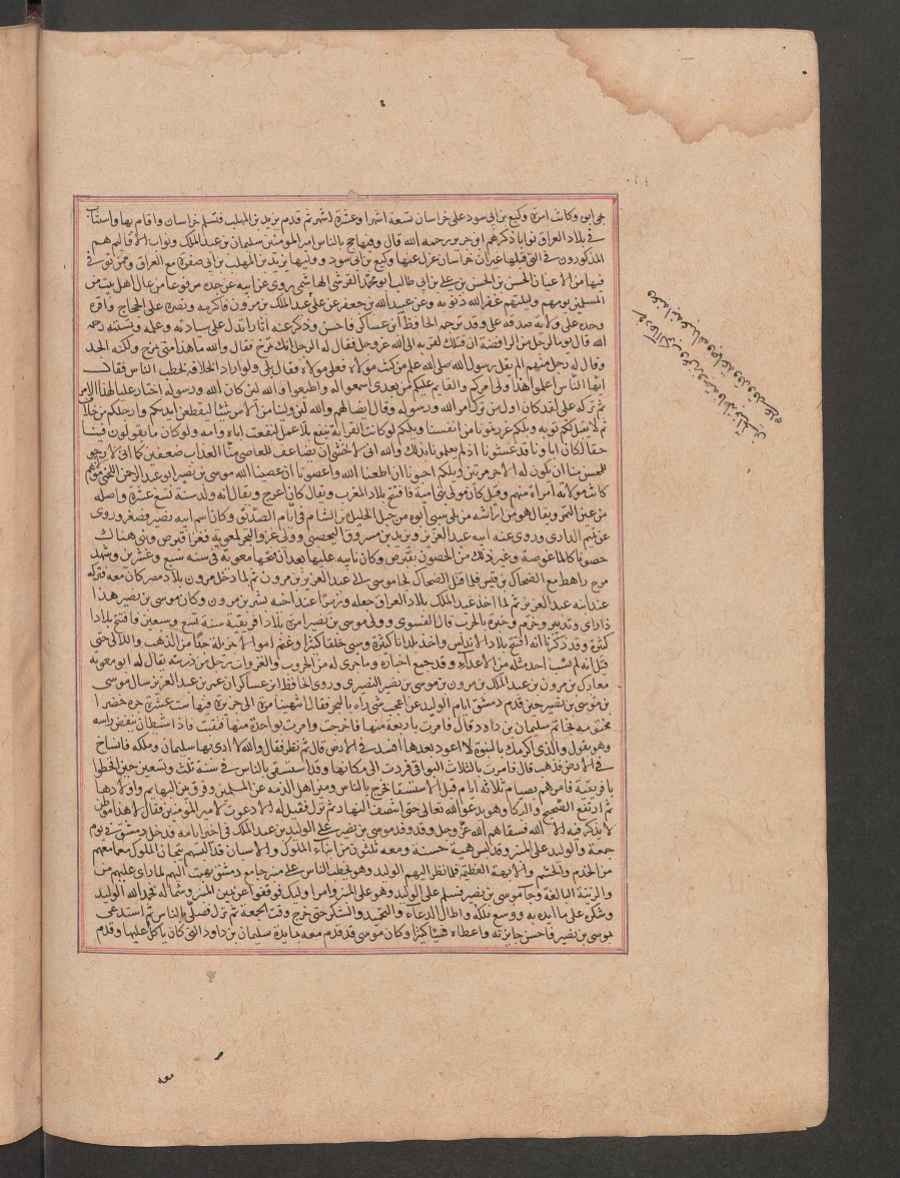 وكانت امرة وكيع بن ابي سود على خراسان تسعة اشهر او عشرة اشهر ثم قدم يزيد بن المهلب فتسلم خراسان واقام بها واستناب
في بلاد العراق نوابا ذكرهم ابن جرير رحمه الله قال وفيها حج بالناس امير المومنين سليمان بن عبد الملك ونواب الاقاليم هم
المذكورون في التي قبلها غير ان خراسان عزل عنها وكيع بن ابي سود ووليها يزيد بن المهلب بن ابي صفرة مع العراق وممن توفي
فيها من الاعيان الحسن بن الحسن بن علي بن ابي طالب ابو محمد القرشي الهاشمي روى عن ابيه عن جده مرفوعا من عال اهل بيت من
المسلمين يومهم وليلتهم غفر الله ذنوبه وعن عبد الله بن جعفر عن علي عبد الملك بن مرون فاكرمه ونصره على الحجاج واقره
وحده على ولاية صدقة علي وقد ترجمه الحافظ ابن عساكر فاحسن وذكر عنه اثارا تدل على سيادته وعلمه وتسننه رحمه
الله قال يوما لرجل من الرافضة ان قتلك لقربة الى الله عز وجل فقال له الرجل انك تمزح فقال والله ما هذا مني بمزح ولكنه الجد
وقال له رجل منهم الم يقل رسول الله صلى الله عليه من كنت مولاه فعلي مولاه فقال بلى ولو اراد الخلافة لخطب الناس فقال
ايها الناس اعلموا ان هذا ولي امركم والقايم عليكم من بعدي اسمعوا له واطيعوا والله لئن كان الله ورسوله اختار عليا لهذا الامر
ثم تركه علي لقد كان اول من ترك امر الله ورسوله وقال ايضا لهم والله لئن ولينا من الامر شئا ليقطعن ايديكم وارجلكم من خلاف
ثم لا نقبل لكم توبة ويلكم غررتمونا من انفسنا ويلكم لو كانت القرابة تنفع بلا عمل لنفعت اباه وامه ولو كان ما تقولون فينا
حقا لكان اباونا قد غشونا اذ لم يعلمونا بذلك والله اني لاخشى ان يضاعف للعاصي منا العذاب ضعفين كما اني لارجو
للمحسن منا ان يكون له الاجر مرتين ويلكم احبونا ان اطعنا الله وابغضونا ان عصينا الله موسى بن نصير ابو عبد الرحمن اللخمي مولاهم
كانت مولاته امراة منهم وقيل كان مولى بني امية فافتتح بلاد المغرب ويقال كان اعرج ويقال انه ولد سنة تسع عشرة واصله
من عين التمر ويقال هو من اراشه من بلي سبي ابوه من جبل الخليل من الشام في ايام الصديق وكان اسم ابيه نصر فصغر وروى
عن تميم الداري وروى عنه ابنه عبد العزيز ويزيد بن مسروق اليحصبي وولي غزو البحر لمعوية فغزا قبرص وبنى هناك
حصونا كالماغوصة وغير ذلك من الحصون بقبرص وكان نايبه عليها بعد ان فتحها معوية في سنة سبع وعشرين وشهد
مرج راهط مع الضحاك بن قيس فلما قتل الضحاك لجا موسى الى عبد العزيز بن مرون ثم لما دخل مرون بلاد مصر كان معه فتركه
عند ابنه عبد العزيز ثم لما اخذ عبد الملك بلاد العراق جعله وزيرا عند اخيه بشر بن مرون وكان موسى بن نصير هذا
ذا راي وتدبير وحزم وخبرة بالحرب قال الفسوي وولي موسى بن نصير امرة بلاد افريقية سنة تسع وسبعين فافتتح بلادا
كثيرة وقد ذكرنا انه افتتح بلاد الاندلس واخذ بلدانا كثيرة وسبى خلقا كثيرا وغنم اموالا جزيلة جدا من الذهب واللالي حتى
قيل انه لم يسب احد مثله من الاعداء وقد جمع اخباره وما جرى له من الحروب والغزوات رجل من ذريته يقال له ابو معوية
معارك بن مرون بن عبد الملك بن مرون بن موسى بن نصير النصيري وروى الحافظ ابن عساكر ان عمر بن عبد العزيز سال موسى
بن نصير حين قدم دمشق ايام الوليد عن اعجب شي راه بالبحر فقال انتهينا مرة الى جزيرة فيها ست عشرة جرة خضرا
مختومة بخاتم سليمان بن داود قال فامرت باربعة منها فاخرجت وامرت بواحدة منها فنقبت فاذا شيطان ينفض راسه
وهو يقول والذي اكرمك بالنبوة لا اعود بعدها افسد في الارض قال ثم نظر فقال والله لا ارى بها سليمان وملكه فانساخ
في الارض فذهب قال فامرت بالثلاث البواقي فردت الى مكانها وقد استسقى بالناس في سنة ثلث وتسعين حين اقحطوا
بافريقية فامرهم بصيام ثلاثة ايام قبل الاستسقا ثم خرج بالناس وميز اهل الذمة عن المسلمين وفرق بين البهايم واولادها
ثم ارتفع الضجيج والبكا وهو يدعو الله تعالى حتى انتصف النهار ثم نزل فقيل له الا دعوت لامير المومنين فقال هذا موطن
لا يذكر فيه الا الله فسقاهم الله عز وجل وقد وفد موسى بن نصير على الوليد بن عبد الملك في اخر ايامه فدخل دمشق في يوم
جمعة والوليد على المنبر وقد لبس هيية حسنة ومعه ثلثون من ابناء الملوك والاسبان قد البسهم تيجان الملوك مع ما معهم
من الخدم والحشم والابهة العظيمة فلما نظر اليهم الوليد وهو يخطب الناس على منبر جامع دمشق بهت اليهم لما راى عليهم من
والزينة البالغة وجا موسى بن نصير فسلم على الوليد وهو على المنبر وامر اوليك فوقفوا عن يمين المنبر وشماله فحمد الله الوليد
وشكره على ما ايده به ووسع ملكه واطال الدعاء والتحميد والشكر حتى خرج وقت الجمعة ثم نزل فصلى بالناس ثم استدعى
بموسى بن نصير فاحسن جايزته واعطاه شيئا كثيرا وكان موسى قد قدم معه بمايدة سليمان بن داود التي كان ياكل عليها وقدم
معه